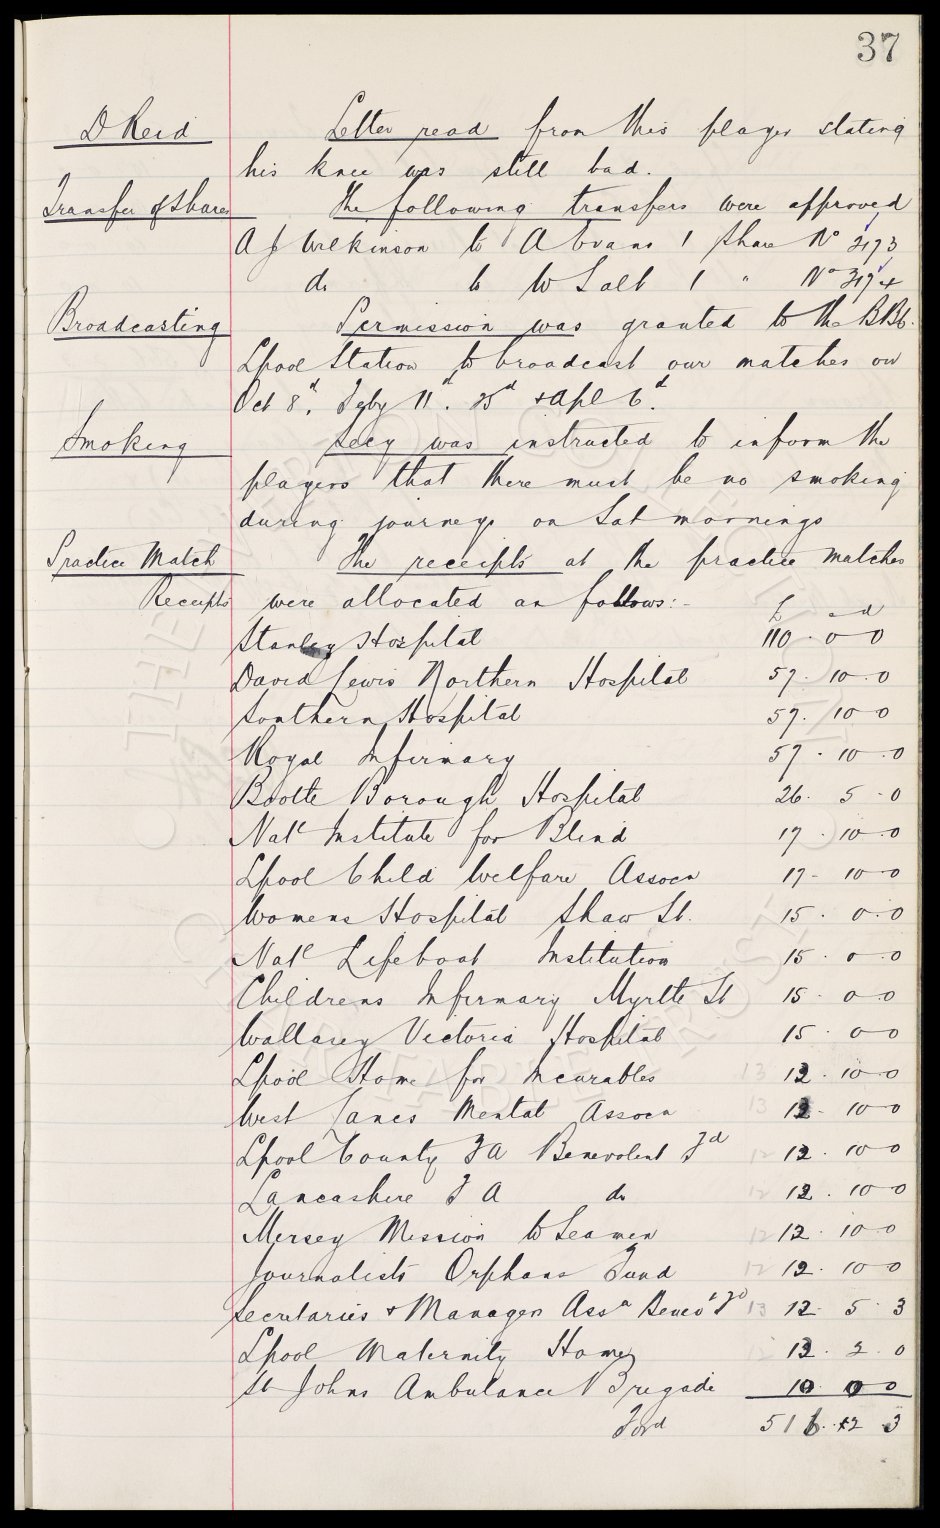 37
D Reid Letter read from this player stating
his knee was still bad.
Transfer of Shares The following transfers were approved
A J Wilkinson to A Evans 1 Share No 3193
do to W Salt 1 " No 3194
Broadcasting Permission was granted to the BBC.
Lpool Station to broadcast our matches on
Oct 8th, Feby 11. 25th & Apl 6th.
Smoking Secy was instructed to inform the
players that there must be no smoking
during journeys on Sat mornings
Practice Match The receipts at the practice matches
Receipts were allocated as follows:-
£ s d
Stanley Hospital 110 . 0 0
David Lewis Northern Hospital 57 . 10 . 0
Southern Hospital 57 . 10 0
Royal Infirmary 57 . 10 . 0
Bootle Borough Hospital 26 . 5 . 0
Natl Institute for Blind 17 . 10 . 0
Lpool Child Welfare Assocn 17 - 10 0
Womens Hospital Shaw St. 15 . 0 . 0
Natl Lifeboat Institution 15 . 0 . 0
Childrens Infirmary Myrtle St 15 . 0 . 0
Wallasey Victoria Hospital 15 . 0 0
Lpool Home for Incurables 13 12 . 10 . 0
West Lancs Mental Assocn 13 12 . 10 0
Lpool County FA Benevolent Fd 12 12 . 10 0
Lancashire F A do 12 12 . 10 0
Mersey Mission to Seamen 12 12 . 10 0
Journalists Orphans Fund 12 12 . 10 0
Secretaries & Managers Assn Benevt Fd 13 12 . 5 . 3
Lpool Maternity Home 12 12 . 2 . 0
St Johns Ambulance Brigade 10 0 0
Ford 516 . 12 3